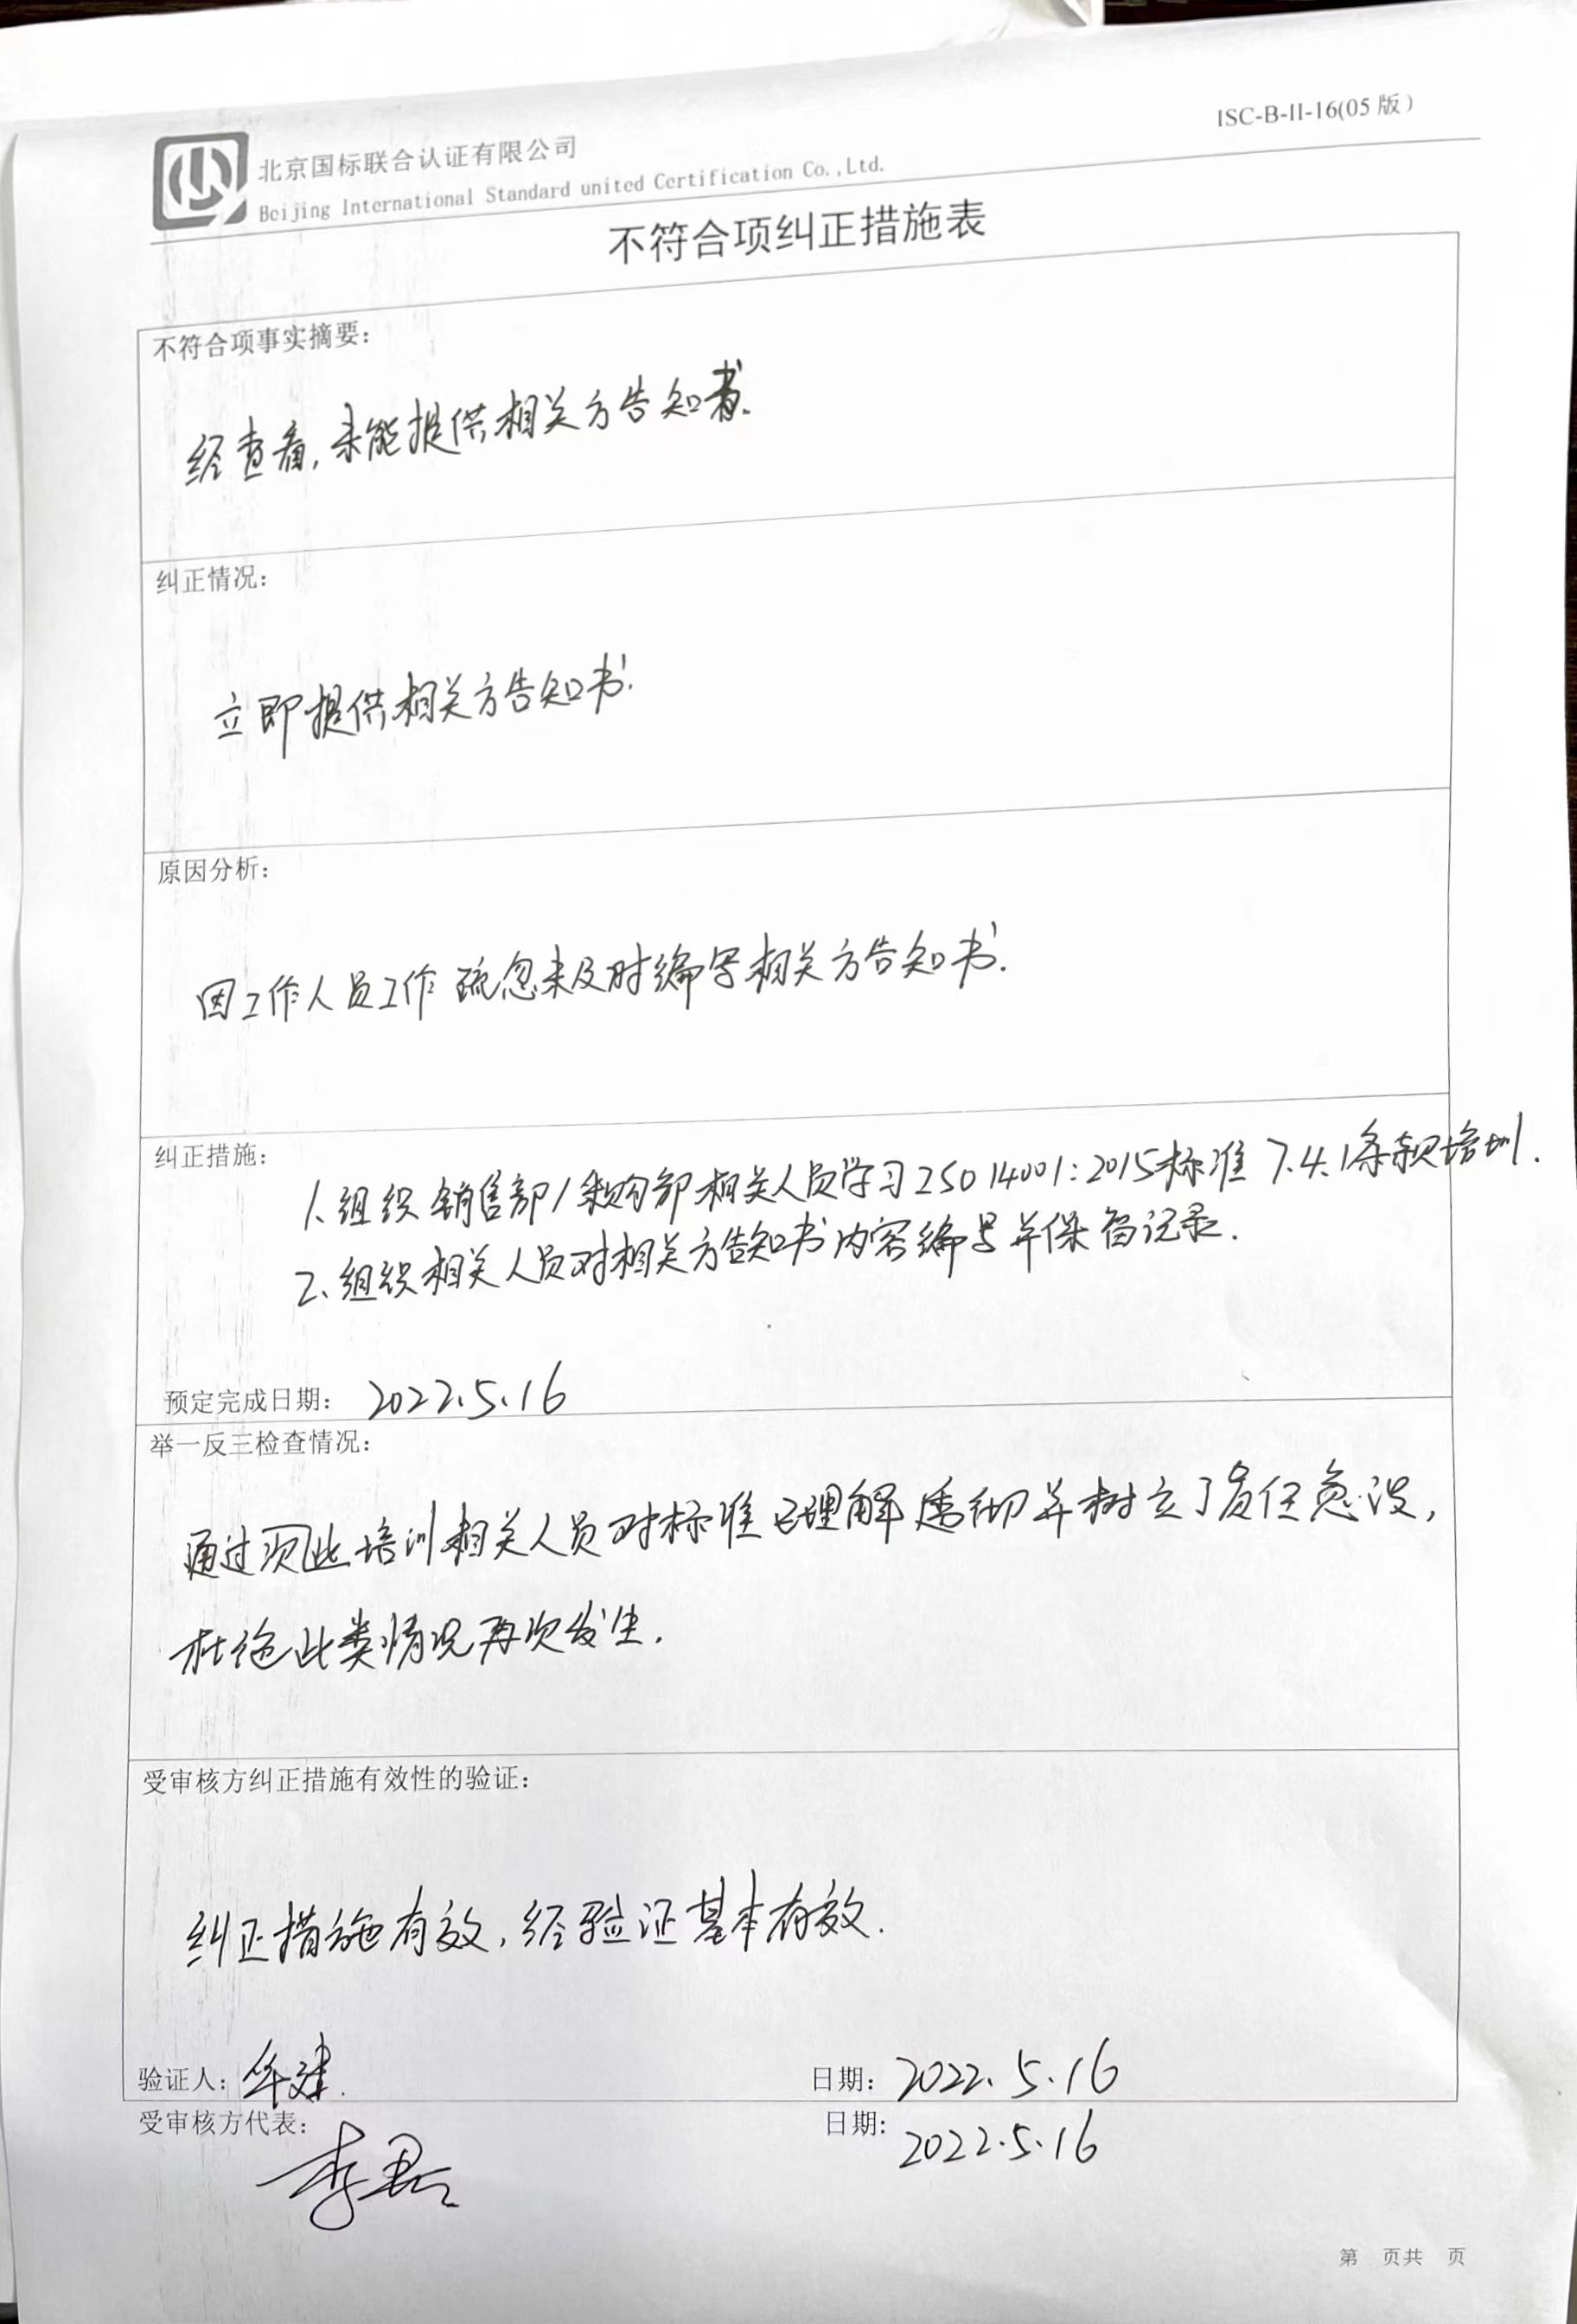 ISC-B-II-16(05 版)
北京国标联合认证有限公司
Beijing International Standard united Certification Co.,Ltd.
不符合项纠正措施表
不符合项事实摘要：
经查看,未能提供相关方告知书.
纠正情况：
立即提供相关方告知书.
原因分析：
因工作人员工作疏忽未及时编写相关方告知书.
纠正措施：
1、组织销售部/采购部相关人员学习ISO 14001:2015标准 7.4.1条款培训.
2、组织相关人员对相关方告知书内容编写并保留记录.
预定完成日期： 2022.5.16
举一反三检查情况：
通过 此培训相关人员对标准已理解透彻并树立了责任意识,
杜绝此类情况再次发生.
受审核方纠正措施有效性的验证：
纠正措施有效,经验证基本有效.
验证人： 日期： 2022.5.16
受审核方代表： 日期： 2022.5.16
第 页共 页